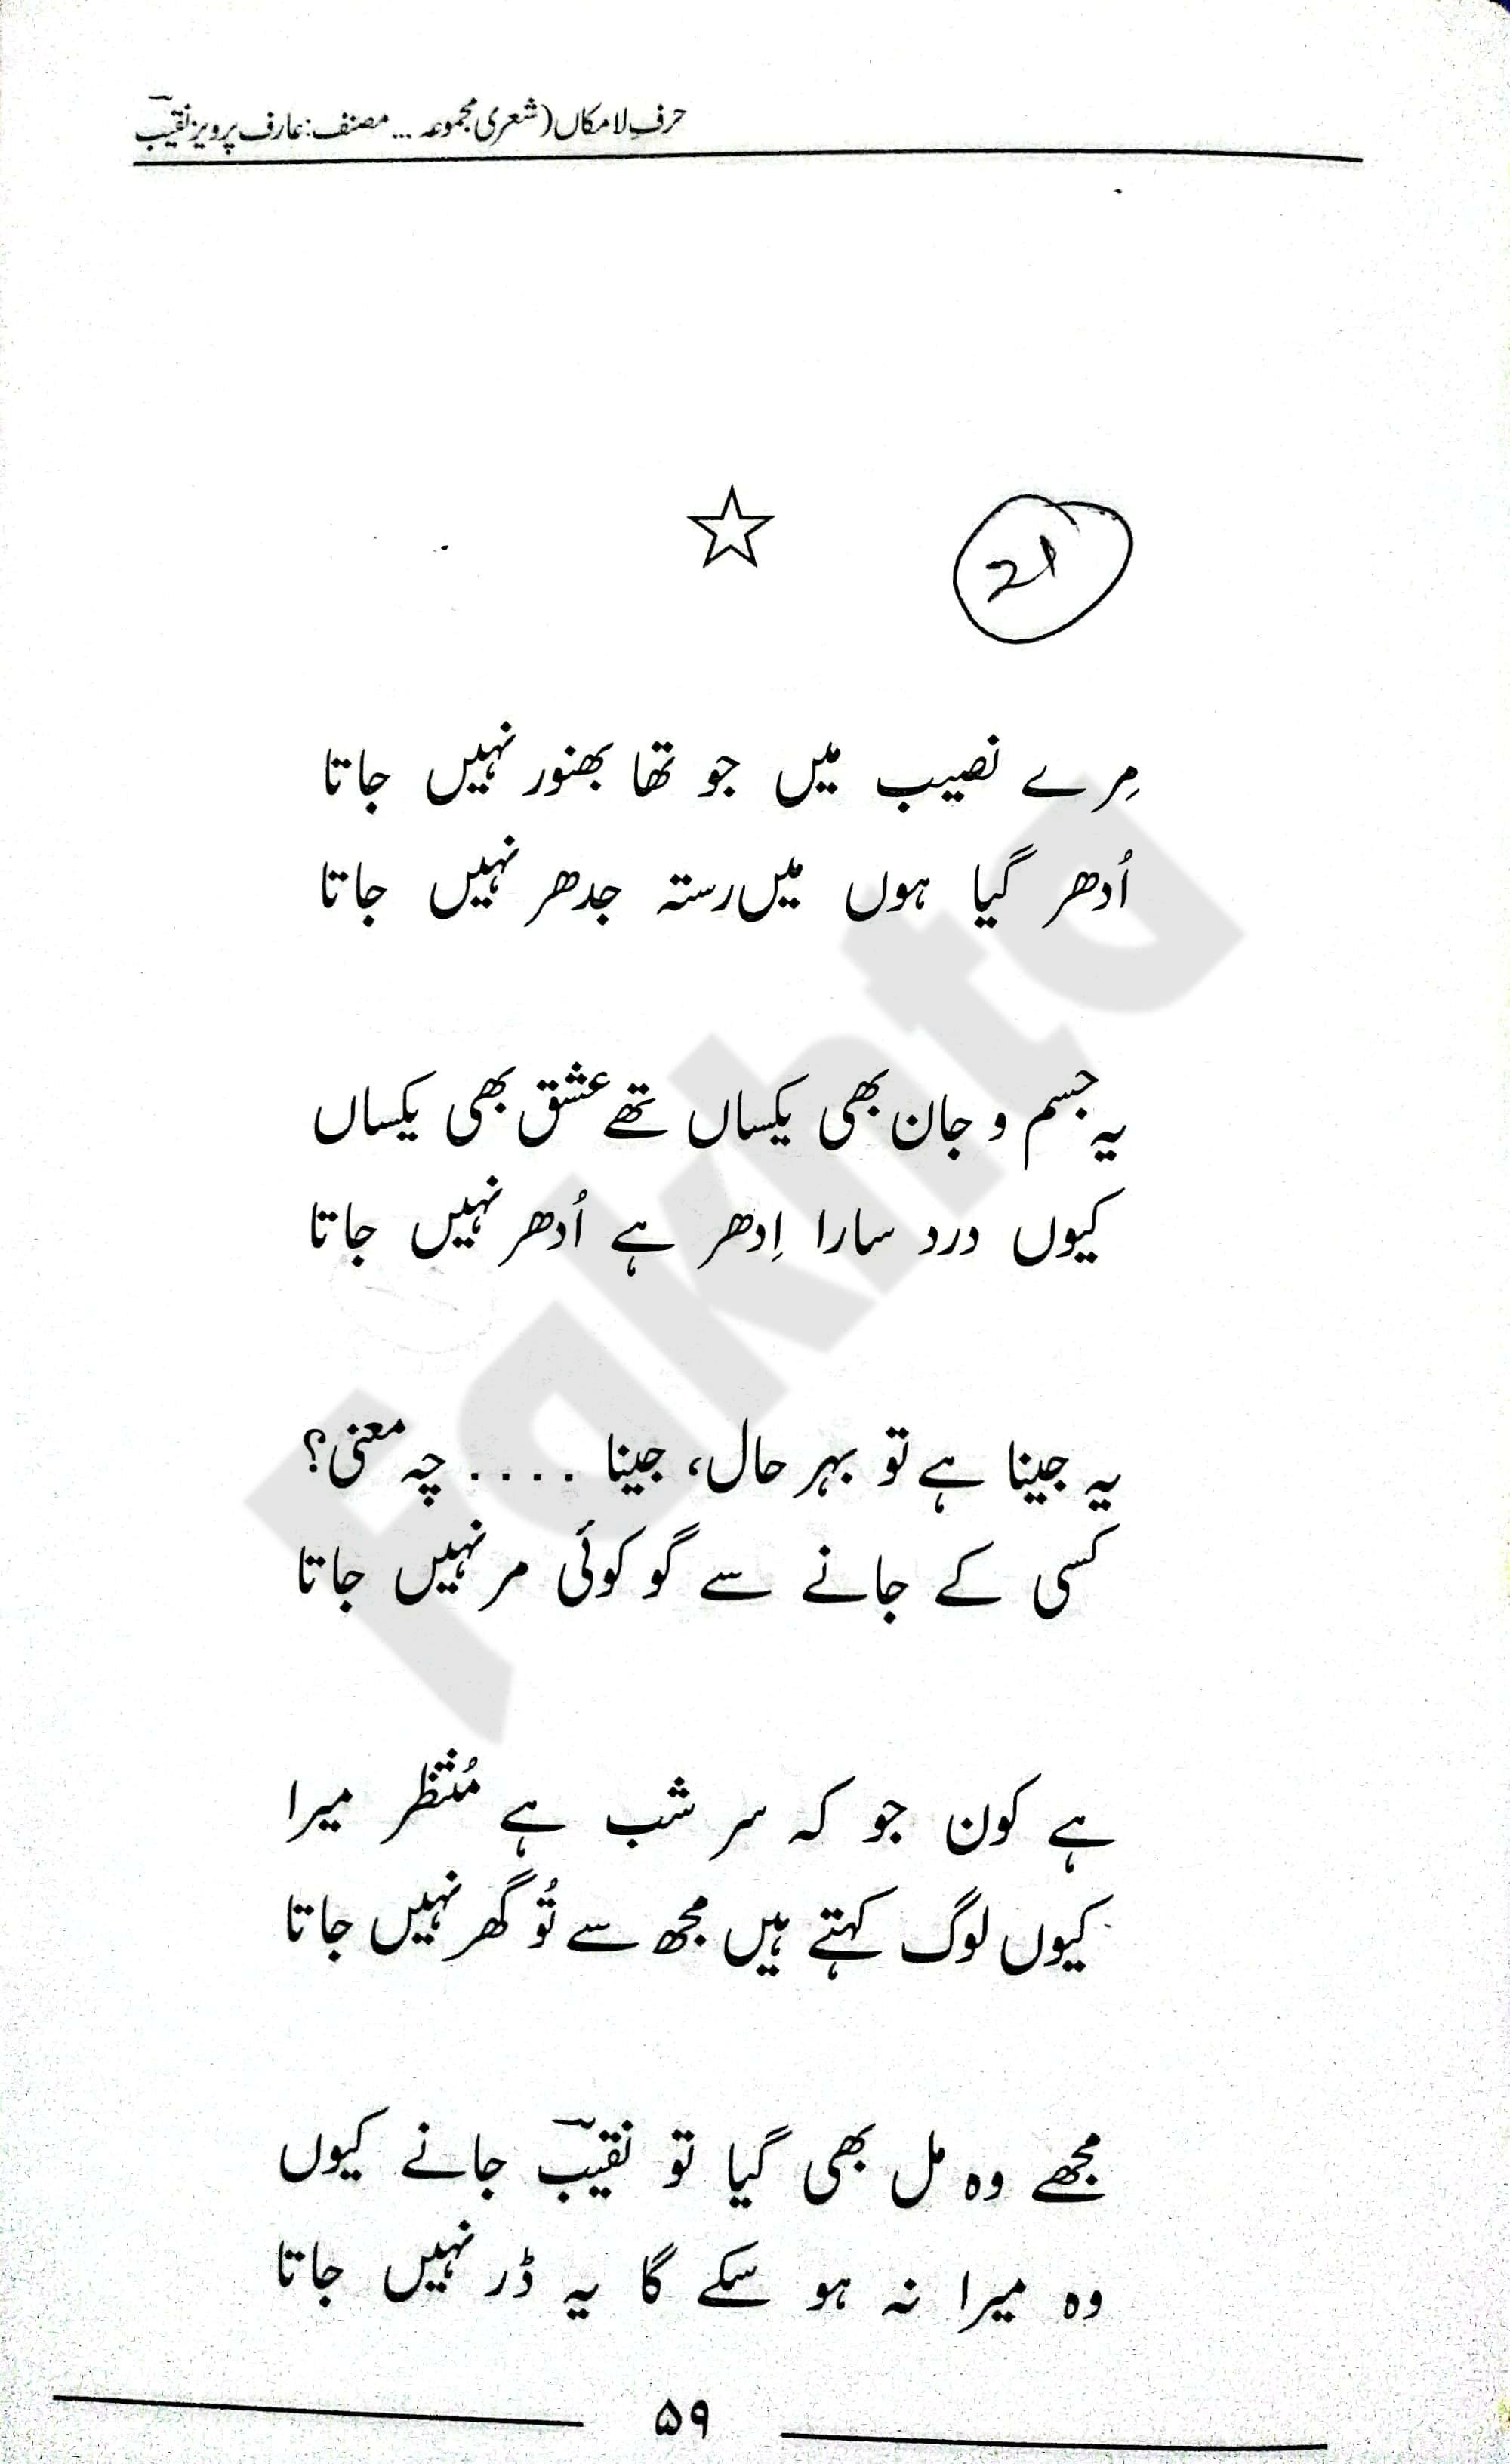 حرفِ لامکاں (شعری مجموعہ ... مصنف: عارف پرویز نقیبؔ
21
مِرے نصیب میں جو تھا بھنور نہیں جاتا
اُدھر گیا ہوں میں رستہ جدھر نہیں جاتا
یہ جسم و جان بھی یکساں تھے عشق بھی یکساں
کیوں درد سارا اِدھر ہے اُدھر نہیں جاتا
یہ جینا ہے تو بہر حال، جینا .... چہ معنی؟
کسی کے جانے سے گو کوئی مر نہیں جاتا
ہے کون جو کہ سر شب ہے مُنتظر میرا
کیوں لوگ کہتے ہیں مجھ سے تُو گھر نہیں جاتا
مجھے وہ مل بھی گیا تو نقیبؔ جانے کیوں
وہ میرا نہ ہو سکے گا یہ ڈر نہیں جاتا
۵۹
Fakhta